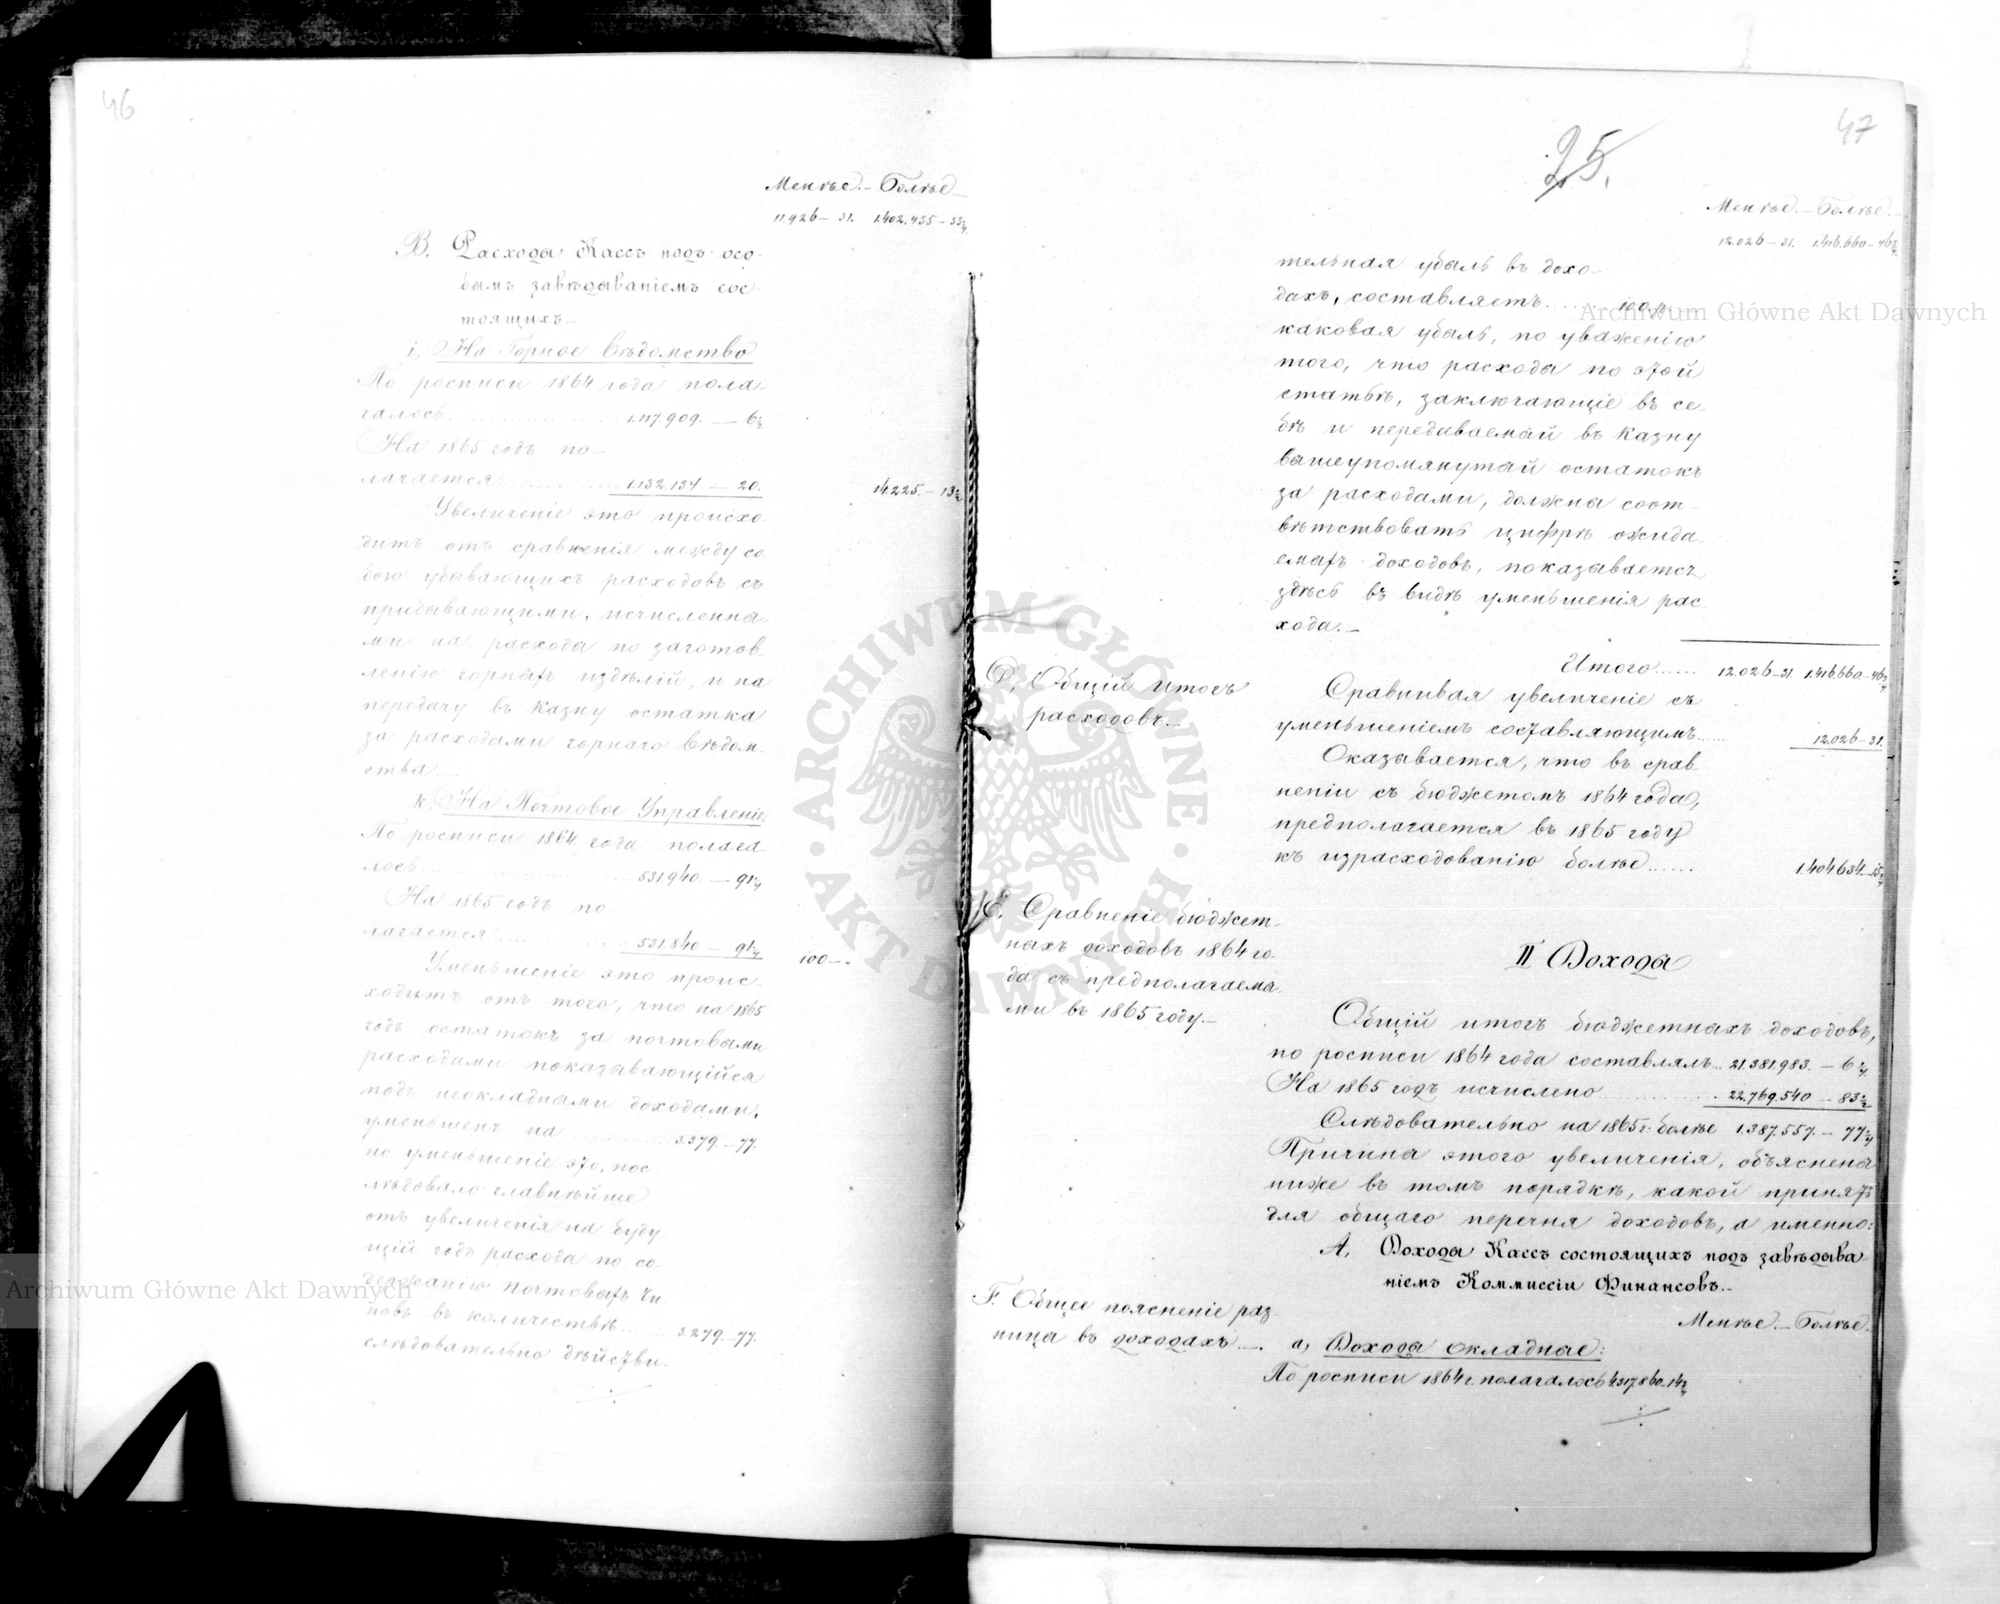 46
Менѣе. — Болѣе. —
11926 — 31. 1.402.435 — 33¼
В. Расходы Кассъ подъ осо-
бымъ завѣдываніемъ сос-
тоящихъ. —
i, На Горное вѣдомство
По росписи 1864 года пола-
галось 1.117.909. — 6½
На 1865 годъ по-
лагается 1.132.134 — 20. 14.225. — 13½
Увеличеніе это происхо-
дитъ отъ сравненія между со-
бою убывающихъ расходовъ съ
прибывающими, исчисленны-
ми на расходы по заготов-
ленію горныхъ издѣлій, и на
передачу въ Казну остатка
за расходами горнаго вѣдом-
ства. —
k, На Почтовое Управленіе
По росписи 1864 года полага-
лось 531.940. — 91¼
На 1865 годъ по-
лагается 531.840 — 91¼ 100 — .
Уменьшеніе это проис-
ходитъ отъ того, что на 1865
годъ остатокъ за почтовыми
расходами показывающійся
подъ неокладными доходами,
уменьшенъ на 3.379. — 77.
но уменьшеніе это, пос-
лѣдовало главнѣйше
отъ увеличенія на буду-
щій годъ расхода по со-
держанію почтовыхъ чи-
новъ въ количествѣ 3.279. — 77.
слѣдовательно дѣйстви-
47
25.
Менѣе. — Болѣе. —
12.026 — 31. 1.416.660 — 46¾
тельная убыль въ дохо-
дахъ, составляетъ 100 р.
каковая убыль, по уваженію
того, что расходы по этой
статьѣ, заключающіе въ се-
бѣ и передаваемый въ Казну
вышеупомянутый остатокъ
за расходами, должны соот-
вѣтствовать цифрѣ ожида-
емыхъ доходовъ, показывается
здѣсь въ видѣ уменьшенія рас-
хода. —
Итого 12.026 — 31 1.416.660 — 46¾
D, Общій итогъ
расходовъ. —
Сравнивая увеличеніе съ
уменьшеніемъ составляющимъ 12.026 — 31.
Оказывается, что въ срав-
неніи съ бюджетомъ 1864 года,
предполагается въ 1865 году
къ израсходованію болѣе 1.404.634 — 15¾
Е. Сравненіе бюджет-
ныхъ доходовъ 1864 го-
да съ предполагаемы-
ми въ 1865 году. —
II Доходы
Общій итогъ бюджетныхъ доходовъ,
по росписи 1864 года составлялъ 21.381.983. — 6¼
На 1865 годъ исчислено 22.769.540 — 83½
Слѣдовательно на 1865 г. болѣе 1.387.557. — 77¼
Причина этого увеличенія, объяснена
ниже въ томъ порядкѣ, какой принятъ
для общаго перечня доходовъ, а именно:
А, Доходы Кассъ состоящихъ подъ завѣдыва-
ніемъ Коммиссіи Финансовъ. —
Менѣе. — Болѣе.
F. Общее поясненіе раз-
ницы въ доходахъ. —
а, Доходы окладные:
По росписи 1864 г. полагалось 4.317.860 — 14½
Archiwum Główne Akt Dawnych
Archiwum Główne Akt Dawnych
ARCHIWUM GŁÓWNE AKT DAWNYCH